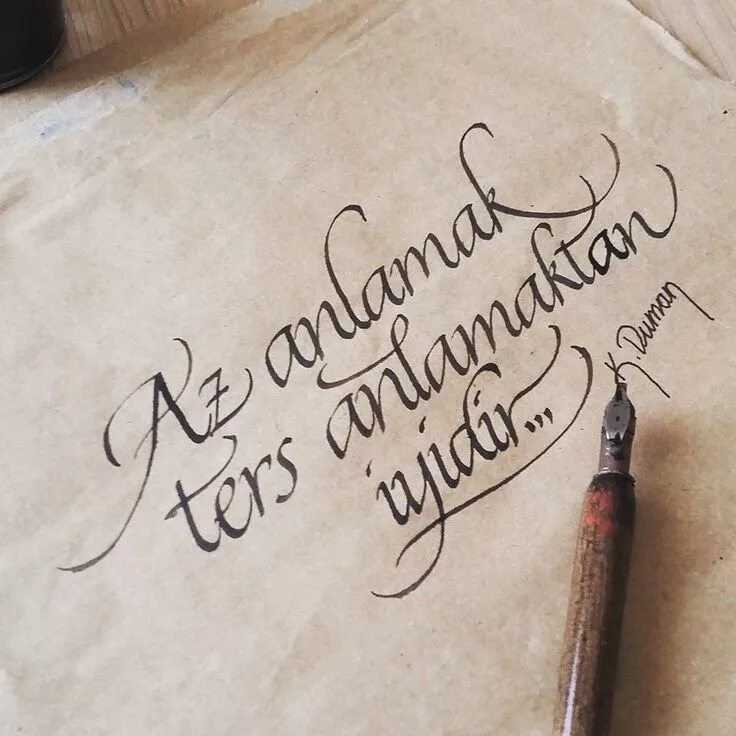 Az anlamak
ters anlamaktan
iyidir...
K. Duman